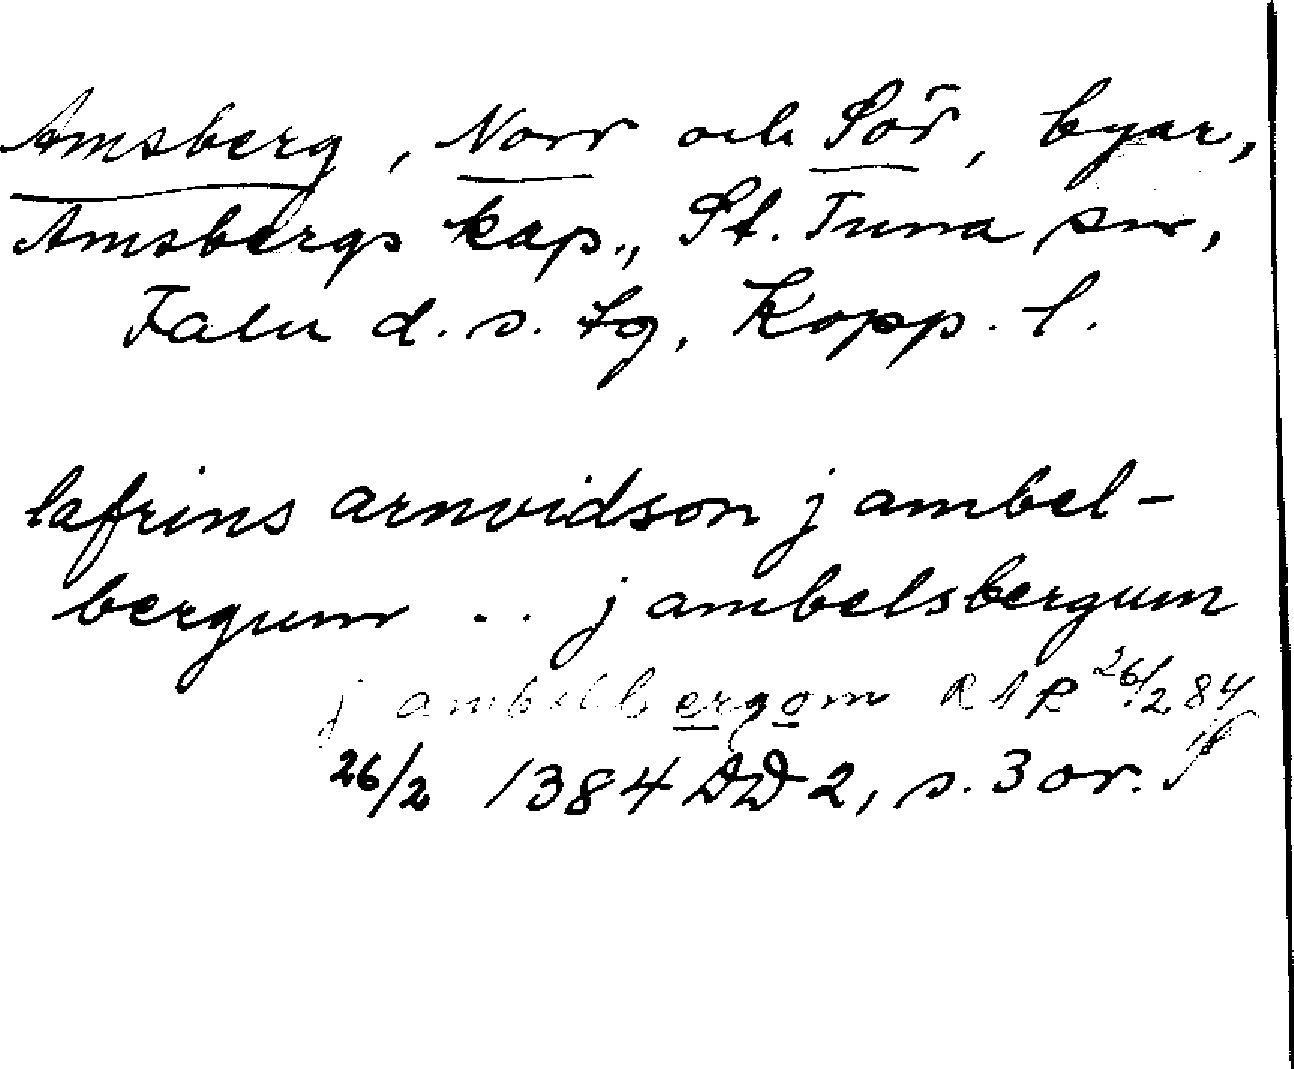 Amsberg, Norr och Sör, byar,
Amsbergs kap., St. Tuna sn,
Falu d. s. tg, Kopp. l.
lafrins arnvidson j ambel-
bergum .. j ambelsbergum
j ambelbergom RAP 26/2 84
26/2 1384 DD 2, s. 3 or.